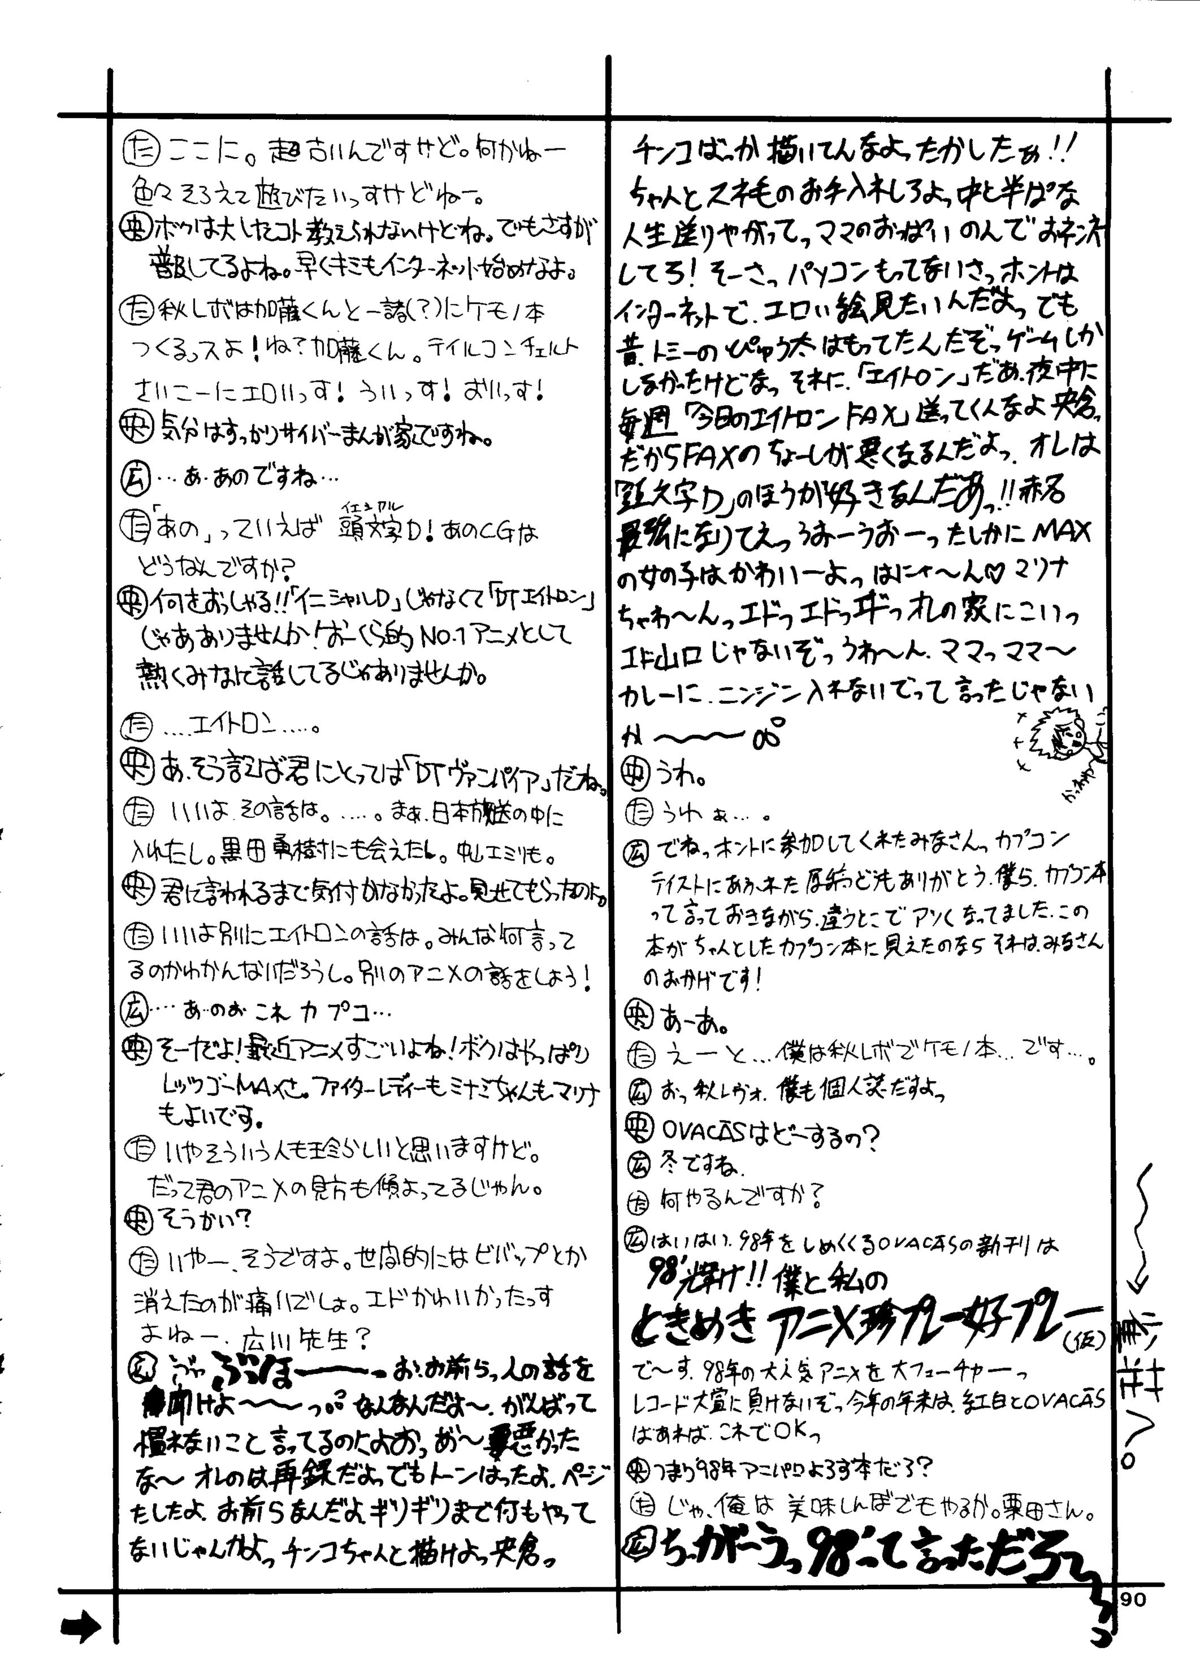 ㋟ここに。超古いんですけど。何かねー
色々そろえて遊びたいっすけどねー。
㊥ボクは大したコト教えられないけどね。でもさすが
普及してるよね。早くキミもインターネット始めなよ。
㋟秋レボは加藤くんと一諸(?)にケモノ本
つくるっスよ!ね?加藤くん。テイルコンチェルト
さいこーにエロいっす!ういっす!おいっす!
気分はすっかりサイバーまんが家ですね。
広…あ・あのですね…
㋟「あの」っていえば 頭文字D!あのCGは
イニシャル
どうなんですか?
何をおっしゃる!!「イニシャルD」じゃなくて「DTエイトロン」
じゃありませんか!おーくら的No.1アニメとして
熱くみなに話してるじゃありませんか。
㋟….エイトロン…..。
あ、そう言えば君にとっては「DTヴァンパイア」だね。
㋟いいよ、その話は。……。まぁ、日本放送の中に
入れたし。黒田勇樹にも会えたし。中山エミリも。
君に言われるまで気付かなかったよ。見せてもらったのに。
㋟いいよ別にエイトロンの話は。みんな何言って
るのかわかんないだろうし。別のアニメの話をしよう!
広…あ…のぉ これ カ プコ…
そーだよ!最近アニメすごいよね!ボクはやっぱり
レッツゴーMAXさ。ファイターレディーもミナミちゃんもマリナ
もよいです。
㋟いやそういう人も珍らしいと思いますけど。
だって君のアニメの見方も傾よってるじゃん。
そうかい?
㋟いやー、そうですよ。世間的にはビバップとか
消えたのが痛いでしょ。エドかわいかったっす
よねー、広川先生?
広 ぶほーーーっ お、お前ら、人の話を
聞けよ〜〜〜っ なんなんだよ〜、がんばって
慣れないこと言ってるのによおっ あ〜悪かった
な〜 オレのは再録だよっでもトーンはったよ、ページ
たしたよ、お前らなんだよギリギリまで何もやって
ないじゃんかよっ チンコちゃんと描けよっ央倉っ
チンコばっか描いてんなよったかしたぁ!!
ちゃんとスネ毛のお手入れしろよっ中と半ぱな
人生送りやがってっママのおっぱいのんでおネンネ
してろ!そーさっ パソコンもってないさっホントは
インターネットで、エロい絵見たいんだよっ でも
昔、トミーのぴゅう太はもってたんだぞっゲームしか
しなかったけどなっ それに、「エイトロン」だあ、夜中に
毎週「今日のエイトロンFAX」送ってくんなよ央倉っ
だからFAXのちょーしが悪くなるんだよっ オレは
「頭文字D」のほうが好きなんだあっ!!赤名
最強になりてえっ うおーうおーったしかにMAX
の女の子はかわいーよっ はにゃ〜ん♡ マリナ
ちゃわ〜んっエドっエドっエドっオレの家にこいっ
エド山口じゃないぞっ うわ〜ん、ママっママ〜
カレーに、ニンジン入れないでって言ったじゃない
か〜〜〜
うわ。
㋟うわぁ…。
広でねっホントに参加してくれたみなさんっ カプコン
テイストにあふれた原稿っどもありがとう、僕ら、カプコン本
って言っておきながら、違うとこでアツくなってました、この
本がちゃんとしたカプコン本に見えたのなら それは、みなさん
のおかげです!
あーあ。
㋟えーと…僕は秋レボでケモノ本…です…。
広おっ秋レヴォ、僕も個人誌だすよっ
OVACASはどーするの?
広冬ですね、
㋟何やるんですか?
広はいはい、98年をしめくくるOVACASの新刊は
98'輝け!! 僕と私の
ときめき アニメ珍プレー好プレー(仮)
で〜す、98年の大人気アニメを大フューチャーっ
レコード大賞に負けないぞっ今年の年末は、紅白とOVACAS
はあれば、これでOKっ
つまり'98年アニパロよろず本だろ?
㋟じゃ、俺は 美味しんぼでもやるか。栗田さん。
広ち、がーうっ 98'って言っただろーっ
90